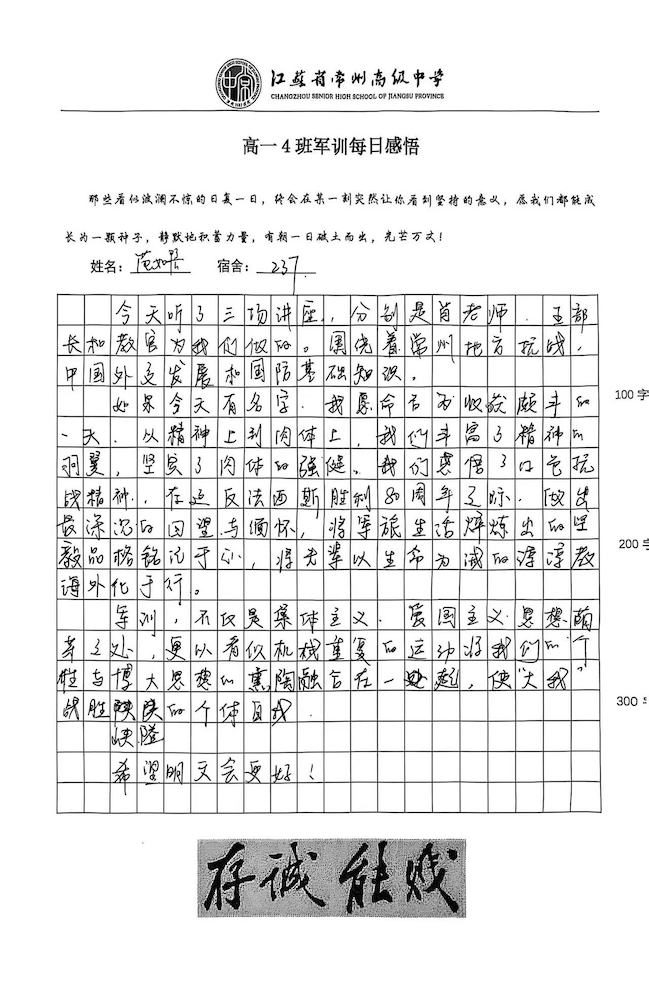 江苏省常州高级中学
CHANGZHOU SENIOR HIGH SCHOOL OF JIANGSU PROVINCE
高一4班军训每日感悟
那些看似波澜不惊的日复一日，终会在某一刻突然让你看到坚持的意义，愿我们都能成
长为一颗种子，静默地积蓄力量，有朝一日破土而出，光芒万丈！
姓名： 宿舍：237
今天听了三场讲座，分别是肖老师、王部
长和教官为我们做的。围绕着常州地方抗战，
中国外交发展和国防基础知识。
如果今天有名字，我愿命名为收获颇丰的
一天。以精神上到肉体上，我们丰富了精神的
羽翼，坚实了肉体的强健。我们感悟了红色抗
战精神，在近反法西斯胜利80周年之际，做出
最深沉的回望与缅怀，将军旅生活焠炼出的坚
毅品格铭记于心，将先辈以生命为诫的谆谆教
诲外化于行。
军训，不仅是集体主义、爱国主义思想萌
芽之处，更以看似机械重复的运动将我们的“个
性”与博大思想的熏陶融合在一起，使“大我”
战胜狭隘的个体自我.
希望明天会更好！
100字
200字
300字
存诚能贱